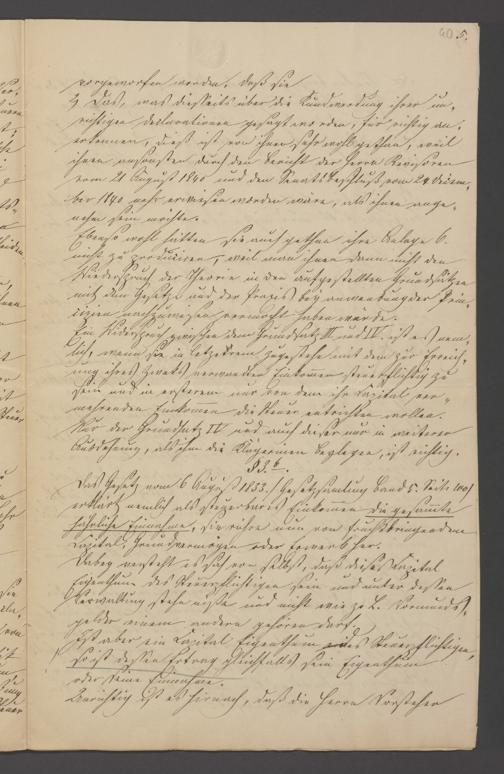 40. 5.
vorgeworfen werden, daß sie
2, Das, was diesseits über die Kundwerdung ihrer un-
richtigen declarationen gesagt worden, für richtig an-
erkennen, dieß ist von ihnen sehr wohl gethan, weil
ihnen ansonsten durch den Bericht der Herrn Revisoren
vom 21 August 1840 und den Senatsbeschluß vom 24 Decem-
ber 1840 mehr erwiesen worden wäre, als ihnen ange-
nehm sein möchte.
Ebenso wohl hätten sie auch gethan ihre Anlage 6.
nicht zu produciren, weil man ihnen dann nicht den
Widerspruch der Theorie in den aufgestellten Grundsätzen
mit dem Gesetze und der Praxis bei Anwendung der Prin-
cipien nachzuweisen vermocht haben würde.
Ein Widerspruch zwischen dem Grundsatz II und IV. ist es nem-
lich, wenn sie in letzterem zugestehe mit dem zur Erreich-
ung ihres Zwecks verwendeten Einkommen steuerpflichtig zu
sein und in ersterem nur von dem ihr Capital ver-
mehrenden Einkommen die Steuer entrichten wollen.
Nur der Grundsatz IV und auch dieser nur in weiterer
Ausdehnung, als ihm die Klägerinnen beylegen, ist richtig.
Das Gesetz vom 6 August 1833. (Gesetzsamlung Band 5. Seite
erklärt nemlich als steuerbares Einkommen die gesamte
jährliche Einnahme, sie rühre nun von fruchtbringendem
Capital, Grundvermögen oder Erwerb her.
Dabey versteht es sich von selbst, daß dieses Capital
Eigenthum des Steuerpflichtigen sein und unter dessen
Verwaltung stehe müsse und nicht wie z. B. Vormunds-
gelder einem andern gehören darf.
Ist aber ein Capital Eigenthum eines Steuerpflichtigen,
so ist dessen Ertrag gleichfalls sein Eigenthum
oder seine Einnahme.
Unrichtig ist es hienach, daß die Herrn Vorsteher